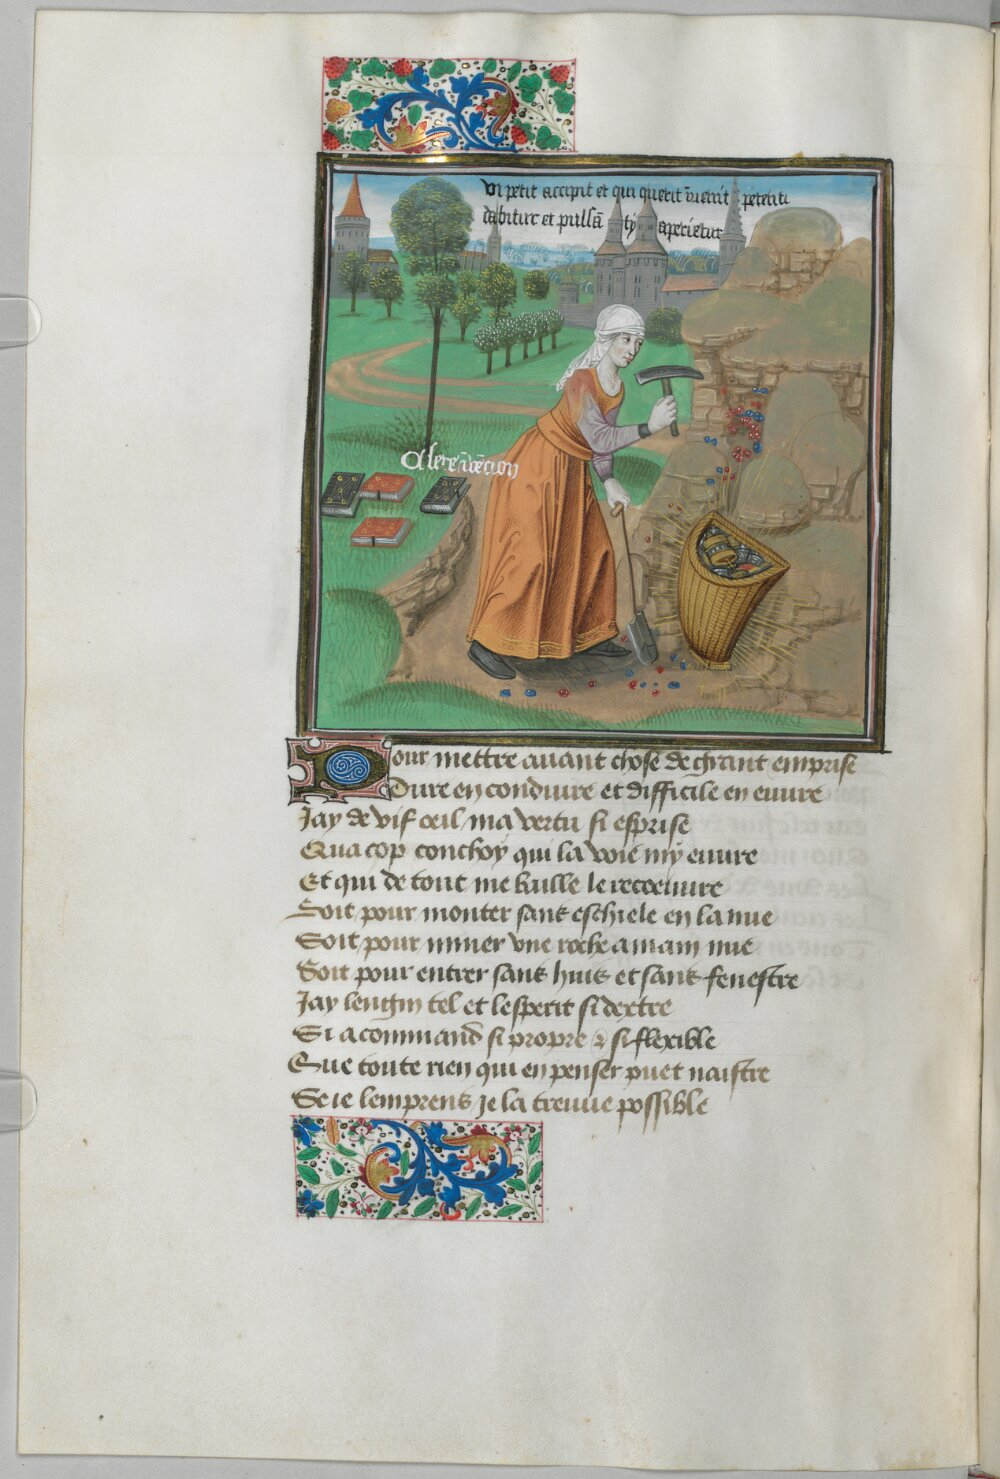 Qui petit accipit et qui querit īvenit petenti
dabitur et pulsā ty aperietur
Clere īvēcion
Pour mettre auant chose de grant emprise
Dure en conduire et difficile en euure
Jay de vif oeil ma vertu si esprise
Qua cop conchoy qui la voie my euure
Et qui de tout me baille le recoeuure
Soit pour monter sans eschiele en la nue
Soit pour miner vne roche a main nue
Soit pour entrer sans huis et sans fenestre
Jay lengin tel et lesperit si dextre
Si a command si propre & si flexible
Que toute rien qui en penser puet naistre
Se ie lemprens je la treuue possible